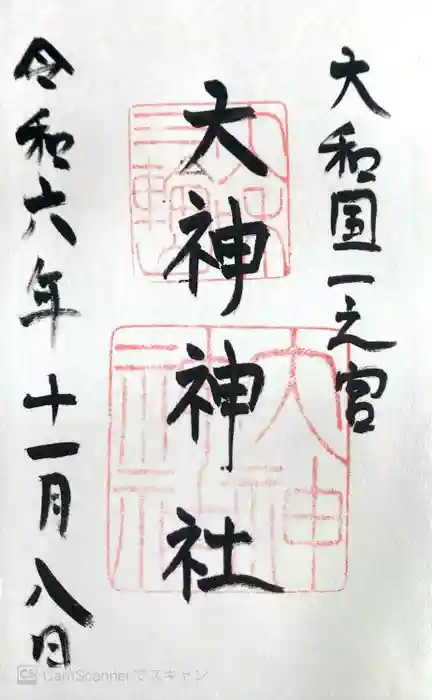 大和国一之宮
大神神社
令和六年十一月八日
三輪
大神神社
CS CamScannerでスキャン